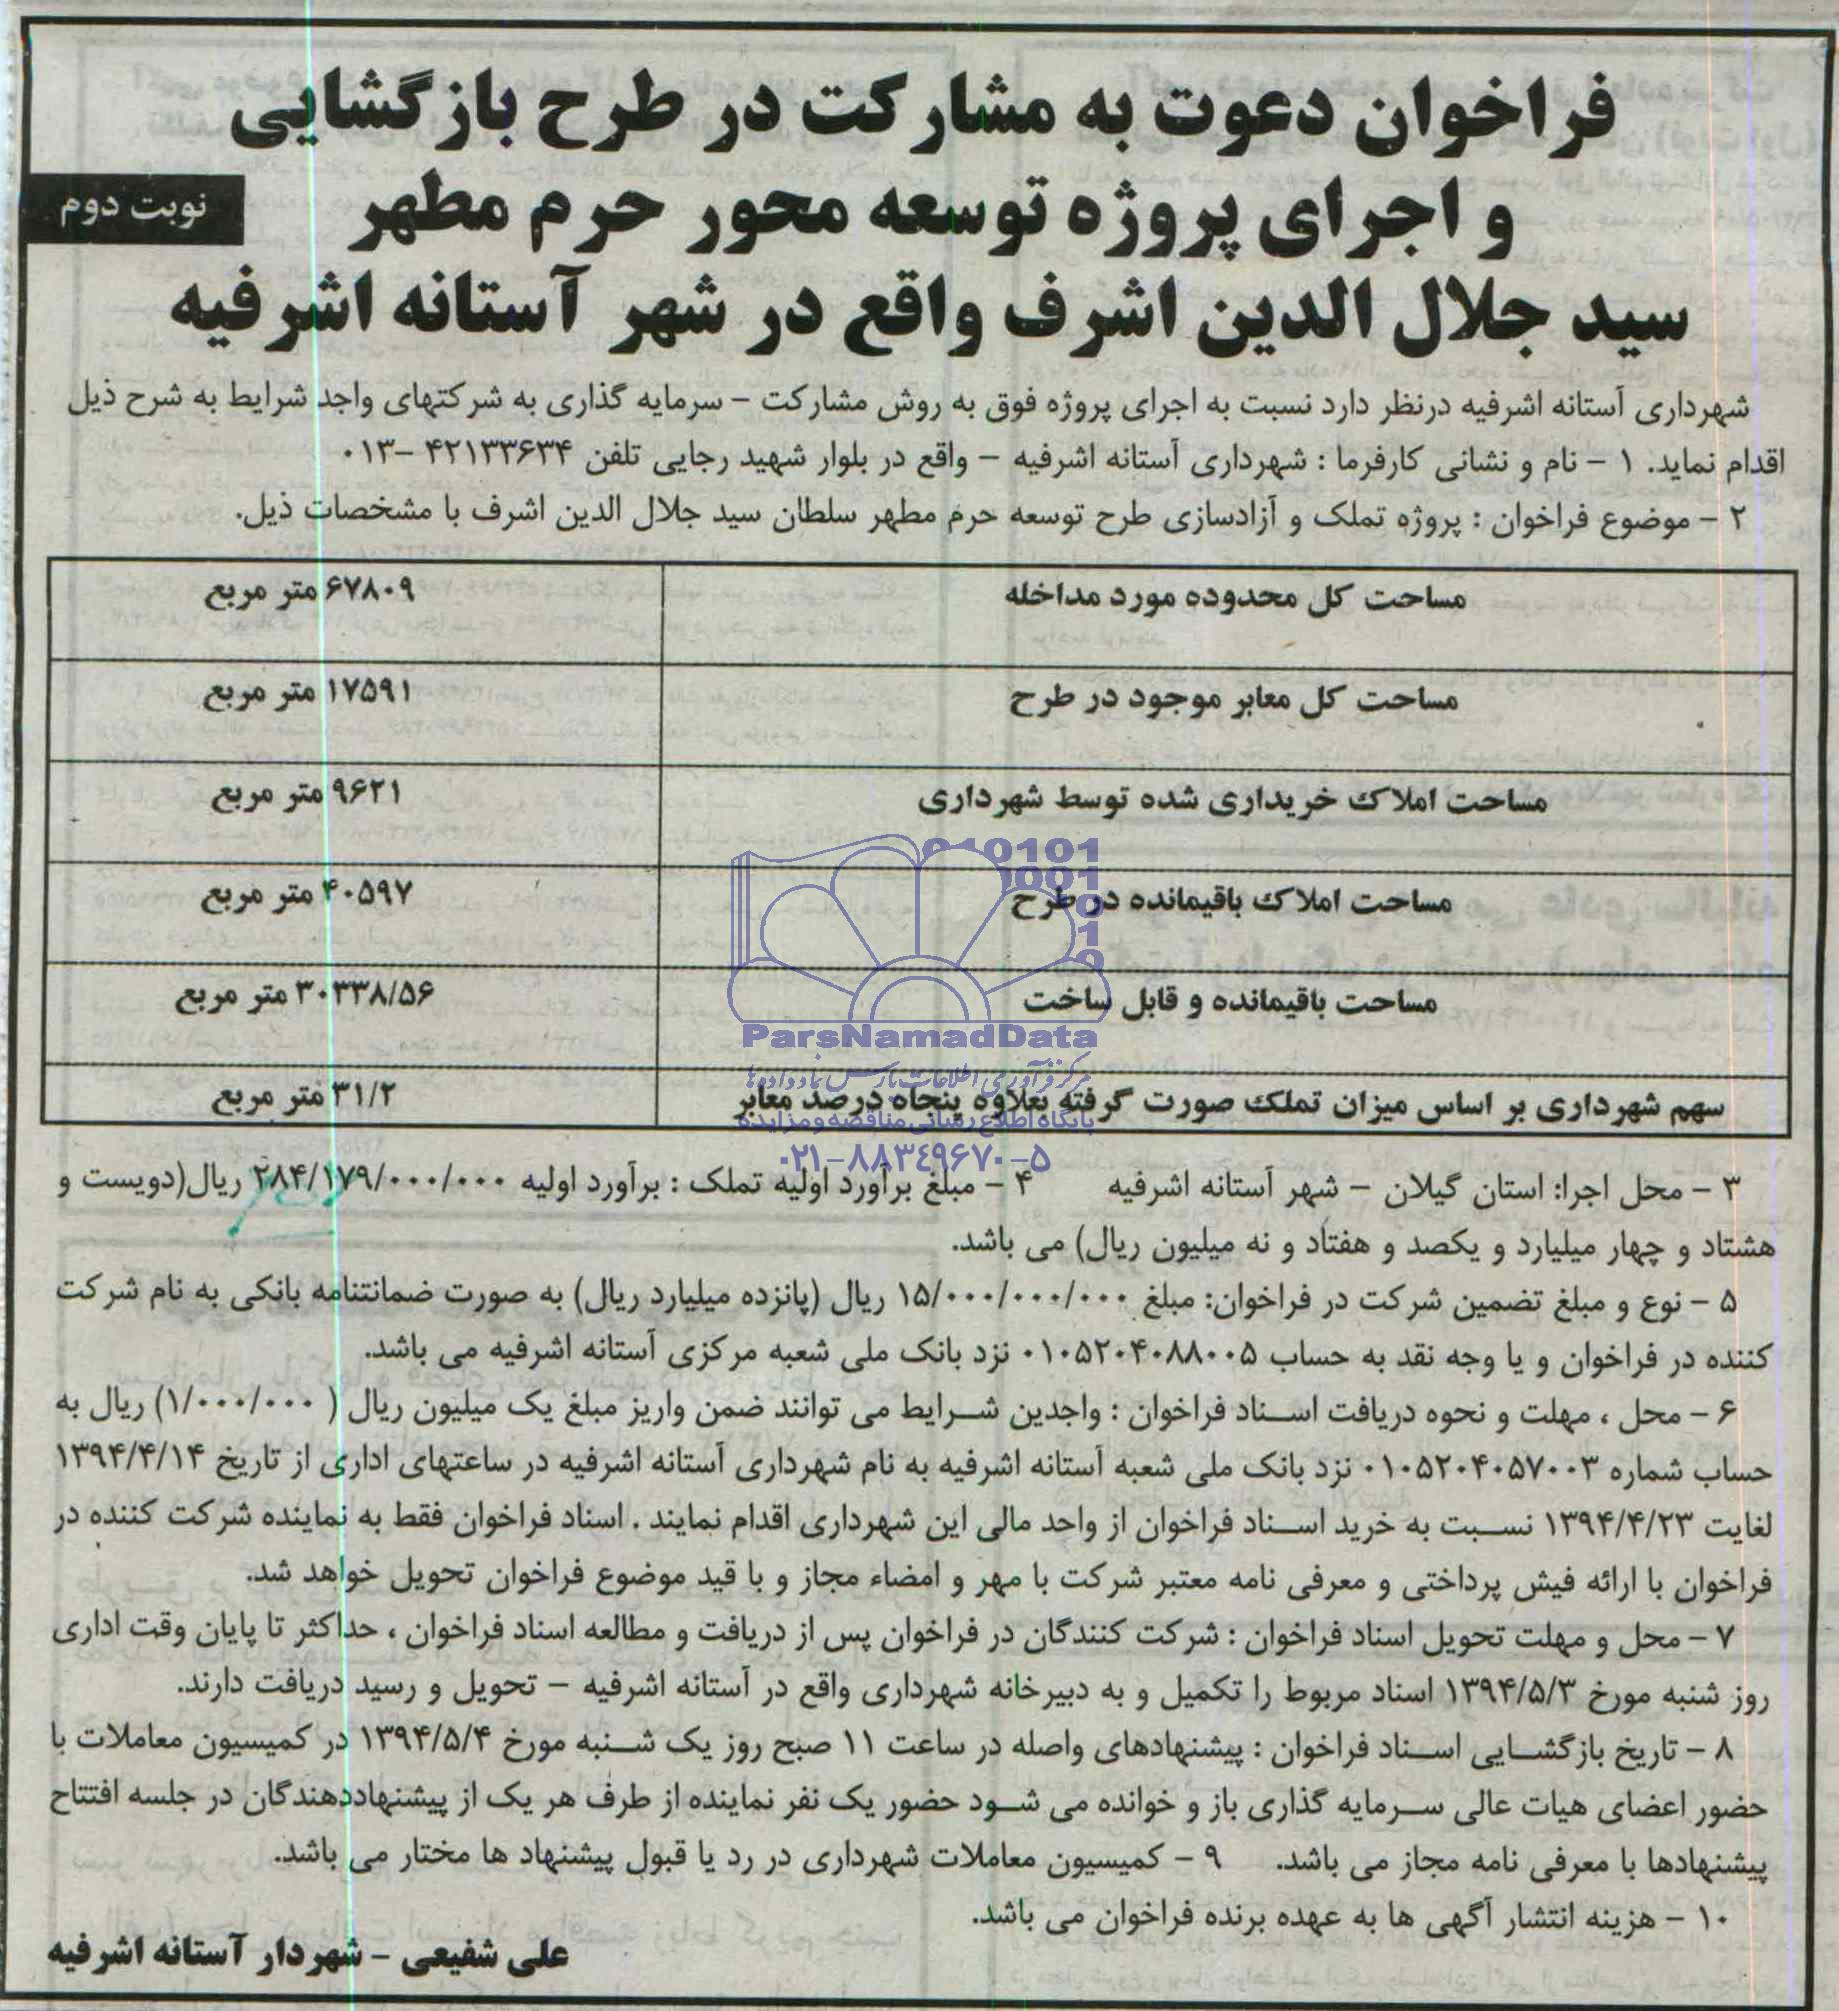 فراخوان دعوت به مشارکت در طرح بازگشایی
و اجرای پروژه توسعه محور حرم مطهر
نوبت دوم
سید جلال الدین اشرف واقع در شهر آستانه اشرفیه
شهرداری آستانه اشرفیه درنظر دارد نسبت به اجرای پروژه فوق به روش مشارکت – سرمایه گذاری به شرکتهای واجد شرایط به شرح ذیل
اقدام نماید. ۱ – نام و نشانی کارفرما : شهرداری آستانه اشرفیه – واقع در بلوار شهید رجایی تلفن ۴۲۱۳۳۶۳۴ –۰۱۳
۲ – موضوع فراخوان : پروژه تملک و آزادسازی طرح توسعه حرم مطهر سلطان سید جلال الدین اشرف با مشخصات ذیل.
مساحت کل محدوده مورد مداخله ۶۷۸۰۹ متر مربع
مساحت کل معابر موجود در طرح ۱۷۵۹۱ متر مربع
مساحت املاک خریداری شده توسط شهرداری ۹۶۲۱ متر مربع
مساحت املاک باقیمانده در طرح ۴۰۵۹۷ متر مربع
مساحت باقیمانده و قابل ساخت ۳۰۳۳۸/۵۶ متر مربع
سهم شهرداری بر اساس میزان تملک صورت گرفته بعلاوه پنجاه درصد معابر ۳۱/۲ متر مربع
010101
001
ParsNamadData
مرکز فرآوری اطلاعات پارس نماد داده ها
پایگاه اطلاع رسانی مناقصه و مزایده
۰۲۱–۸۸۳۴۹۶۷۰–۵
۳ – محل اجرا: استان گیلان – شهر آستانه اشرفیه ۴ – مبلغ برآورد اولیه تملک : برآورد اولیه ۲۸۴/۱۷۹/۰۰۰/۰۰۰ ریال(دویست و
هشتاد و چهار میلیارد و یکصد و هفتاد و نه میلیون ریال) می باشد.
۵ – نوع و مبلغ تضمین شرکت در فراخوان: مبلغ ۱۵/۰۰۰/۰۰۰/۰۰۰ ریال (پانزده میلیارد ریال) به صورت ضمانتنامه بانکی به نام شرکت
کننده در فراخوان و یا وجه نقد به حساب ۰۱۰۵۲۰۴۰۸۸۰۰۵ نزد بانک ملی شعبه مرکزی آستانه اشرفیه می باشد.
۶ – محل ، مهلت و نحوه دریافت اسناد فراخوان : واجدین شرایط می توانند ضمن واریز مبلغ یک میلیون ریال ( ۱/۰۰۰/۰۰۰) ریال به
حساب شماره ۰۱۰۵۲۰۴۰۵۷۰۰۳ نزد بانک ملی شعبه آستانه اشرفیه به نام شهرداری آستانه اشرفیه در ساعتهای اداری از تاریخ ۱۳۹۴/۴/۱۴
لغایت ۱۳۹۴/۴/۲۳ نسبت به خرید اسناد فراخوان از واحد مالی این شهرداری اقدام نمایند . اسناد فراخوان فقط به نماینده شرکت کننده در
فراخوان با ارائه فیش پرداختی و معرفی نامه معتبر شرکت با مهر و امضاء مجاز و با قید موضوع فراخوان تحویل خواهد شد.
۷ – محل و مهلت تحویل اسناد فراخوان : شرکت کنندگان در فراخوان پس از دریافت و مطالعه اسناد فراخوان ، حداکثر تا پایان وقت اداری
روز شنبه مورخ ۱۳۹۴/۵/۳ اسناد مربوط را تکمیل و به دبیرخانه شهرداری واقع در آستانه اشرفیه – تحویل و رسید دریافت دارند.
۸ – تاریخ بازگشایی اسناد فراخوان : پیشنهادهای واصله در ساعت ۱۱ صبح روز یک شنبه مورخ ۱۳۹۴/۵/۴ در کمیسیون معاملات با
حضور اعضای هیات عالی سرمایه گذاری باز و خوانده می شود حضور یک نفر نماینده از طرف هر یک از پیشنهاددهندگان در جلسه افتتاح
پیشنهادها با معرفی نامه مجاز می باشد. ۹ – کمیسیون معاملات شهرداری در رد یا قبول پیشنهاد ها مختار می باشد.
۱۰ – هزینه انتشار آگهی ها به عهده برنده فراخوان می باشد.
علی شفیعی – شهردار آستانه اشرفیه